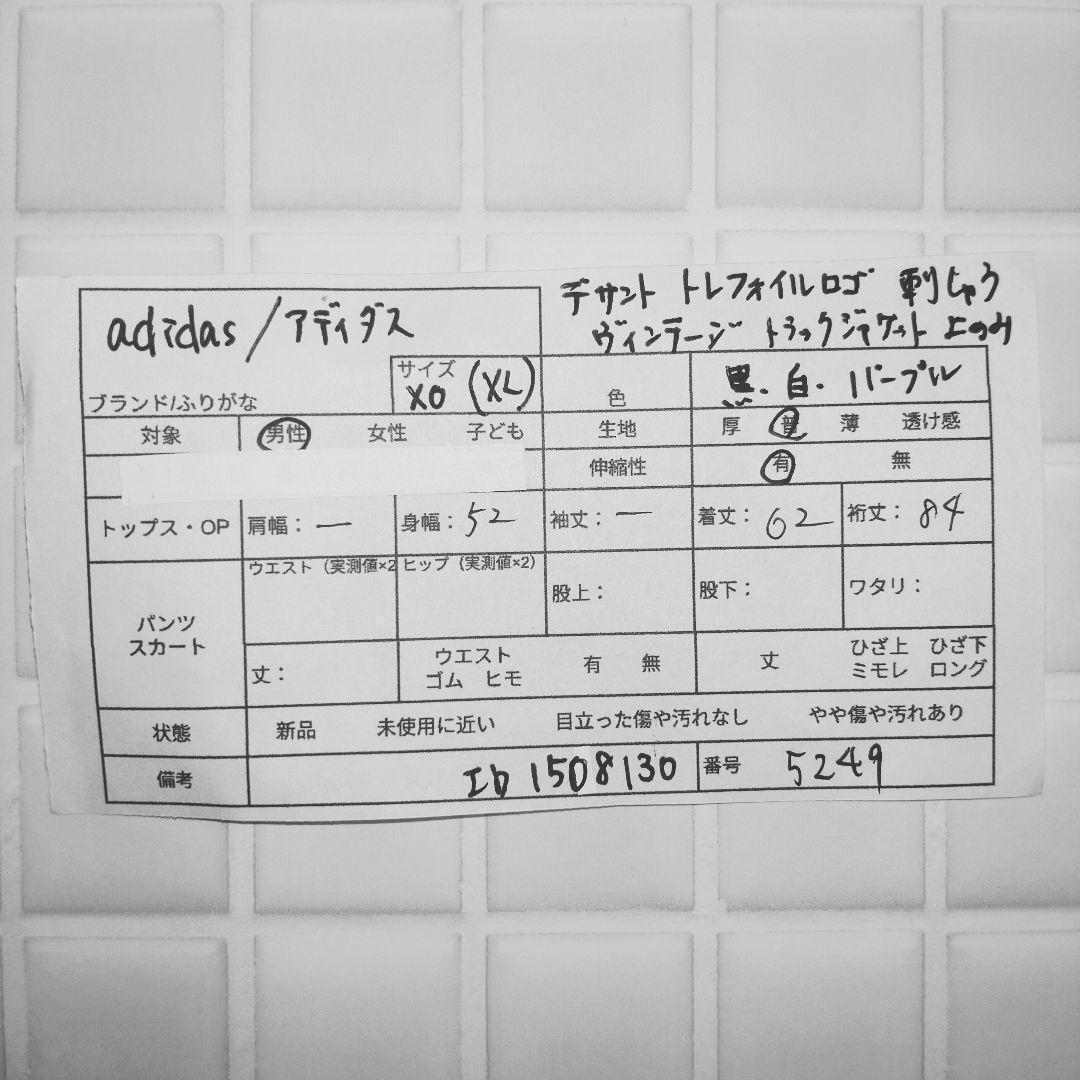 デサント トレフォイルロゴ 刺しゅう
ヴィンテージ トラックジャケット 上のみ
adidas/アディダス
ブランド/ふりがな
サイズ
XO (XL)
色
黒．白．パープル
対象 男性 女性 子ども
生地 厚 普 薄 透け感
伸縮性 有 無
トップス・OP 肩幅：ー 身幅：52 袖丈：ー 着丈：62 裄丈：84
パンツ
スカート
ウエスト（実測値×2 ヒップ（実測値×2）
股上： 股下： ワタリ：
丈：
ウエスト
ゴム ヒモ
有 無
丈
ひざ上 ひざ下
ミモレ ロング
状態 新品 未使用に近い 目立った傷や汚れなし やや傷や汚れあり
備考 エb 1508130 番号 5249